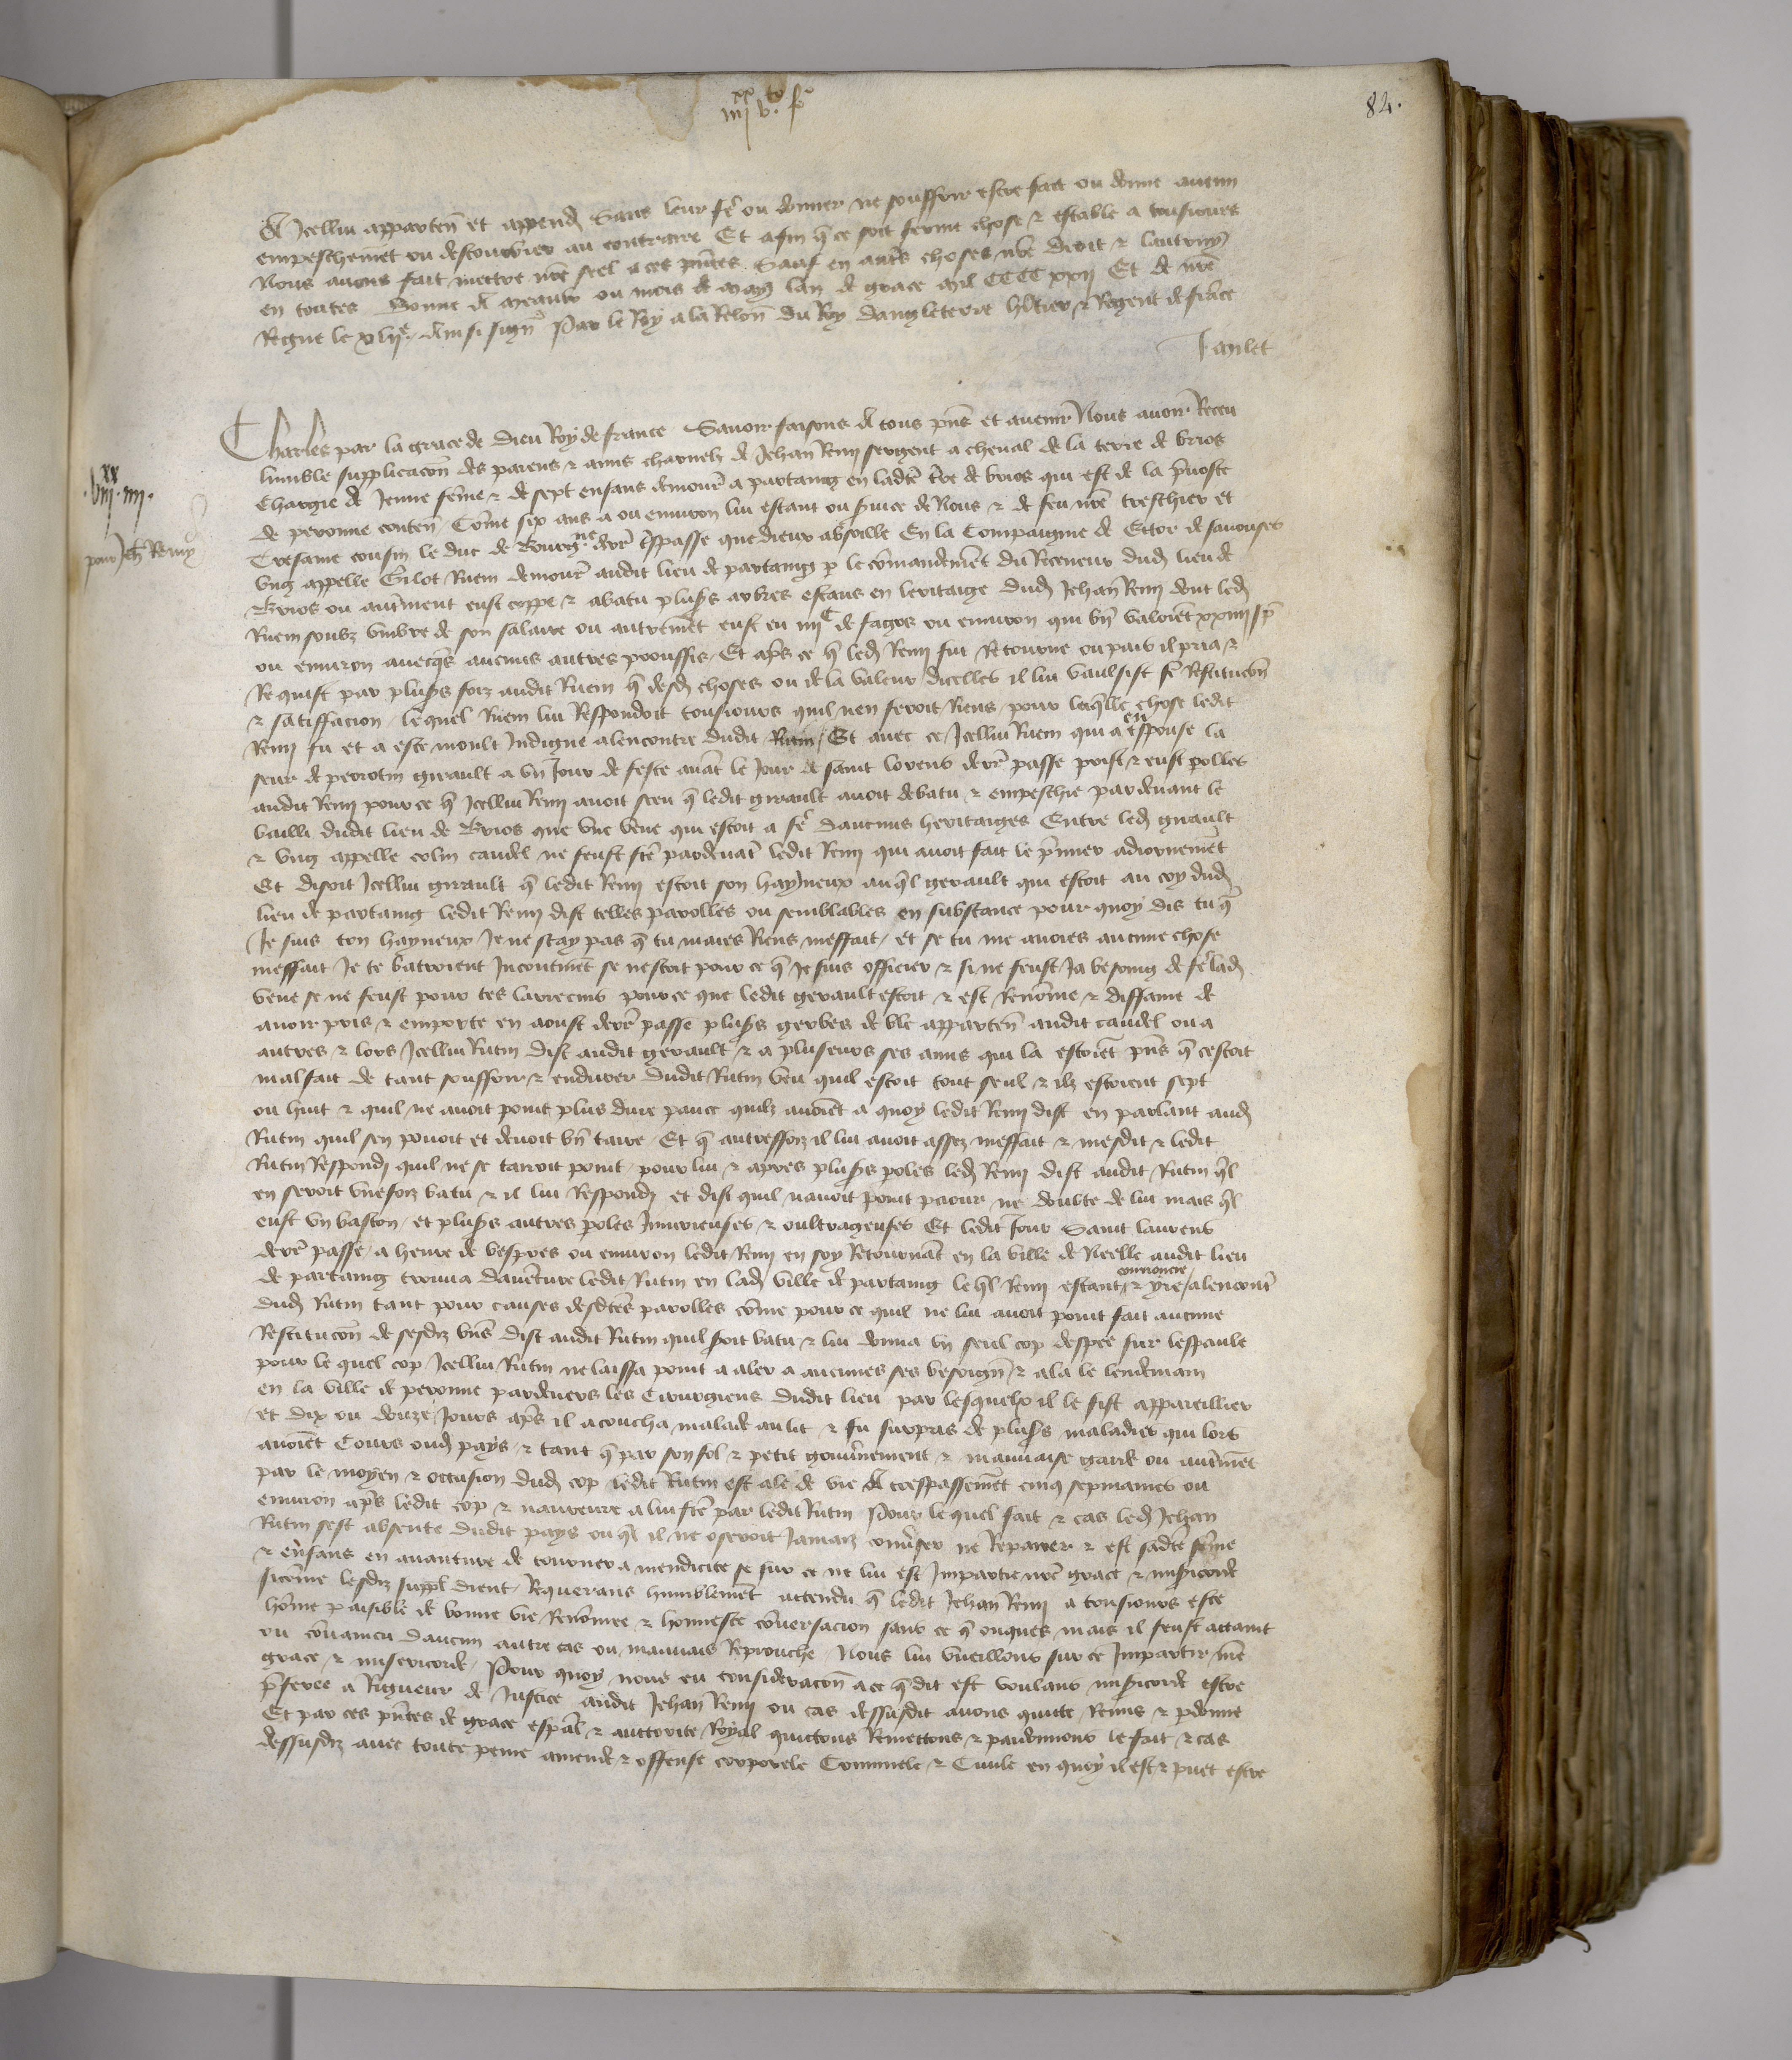 iiijxx vto fo
84.
A Icellui apparten̄ et append̄ Sans leur fe᷑ ou donner ne souffrir estre fait ou donne aucun
empeschemēt ou destourbier au contraire Et afin q̄ ce soit ferme chose & estable a tousiours
Nous auons fait mettre nr̄e seel a ces pn̄tes. Sauf en autr̄s choses nr̄e droit & lautruy
en toutes Donne A meaulx ou mois de may lan de grace mil CCCC xxij Et de nr̄e
Regne le xlije. Ainsi signe Par le Roy a la Relon̄ du Roy dangleterre h̄itier & Regent de frāce
J milet
Charles par la grace de Dieu Roy de france Sauoir faisons A tous pn̄s et auenir Nous auoir Receu
lumble supplicacōn des parens & amis charnelz de Jehan Remy sergent a cheual de la terre de brios
.viijxx.iiij.
Chargie de Jeune fēme & de sept enfans demour̄ a partaing en ladc̄e t̄re de brios qui est de la p̄uoste
de peronne conten̄ Cōme six ans a ou enuiron lui estant ou s̄uice de Nous & de feu nr̄e treschier et
Tresame cousin le duc de Bourgne. derr̄ t̄spasse que dieux absoille En la Compaignie de Ector de sauouses
pour Jeh̄ Remy
vng appelle Gilot Ruem demour̄ audit lieu de partaing p̄ le cōmandemēt du Receueur dud̄ lieu de
Brios ou autr̄ment eust coppe & abatu plus̄s arbres estans en leritaige dud̄ Jehan Remy dont led̄
Ruem soubz vmbre de son salaire ou autremēt eust eu iiijC de fagos ou enuiron qui bn̄ valoiēt xxiiij s̄ p̄
ou enuiron auecq̄s aucuns autres prouffis. Et apr̄s ce q̄ led̄ Remy fut Retourne ou pais il pria &
Requist par plus̄s foiz audit Ruem q̄ desd̄ choses ou de la valeur dicelles il lui vaulsist fe᷑ Restitucōn
& satiffacion. lequel Ruem lui Respondoit tousiours quil nen feroit Riens. pour laq̄lle chose ledit
Remy fu et a este moult Indigne alencontre dudit Ruem / Et auec ce Icellui Ruem qui a en espouse la
seur de perrotin girault a vn Jour de feste auāt le Jour de saint lorens derr̄ passe prist & eust p̄olles
audit Remy pour ce q̄ Icellui Remy auoit sceu q̄ ledit girault auoit debatu & empeschie pardeuant le
bailli dudit lieu de Brios que vne veue qui estoit a fe᷑ daucuns heritaiges Entre led̄ girault
& vng appelle colin caudel ne feust fc̄e pardeuāt ledit Remy qui auoit fait le p̄mier adiornemēt
Et disoit Icellui girault q̄ ledit Remy estoit son hayneux auq̄l gerault qui estoit au coy dud̄
lieu de partaing ledit Remy dist telles parolles ou semblables en substance pour quoy dis tu q̄
Je suis ton hayneux Je ne scay pas q̄ tu maies Riens meffait / et se tu me auoies aucune chose
meffait Je te batroient Incontinēt se nestoit pour ce q̄ Je suis officier & si ne feust Ja besoing de fe᷑ lad̄
veue se ne feust pour tes larrecins pour ce que ledit gerault estoit & est Renōme & diffame de
auoir pris & emporte en aoust derr̄ passe plus̄s gerbes de ble apparten̄ audit caudel ou a
autres & lors Icellui Rutin dist audit gerault & a pluseurs ses amis qui la estoiēt pn̄s q̄ cestoit
mal fait de tant souffrir & endurer dudit Rutin veu quil estoit tout seul & ilz estoient sept
ou huit & quil ne auoit point plus dure pance quilz auoiēt a quoy ledit Remy dist en parlant aud̄
Rutin quil sen pouoit et deuoit bn̄ taire. Et q̄ autresfoiz il lui auoit assez meffait & mesdit & ledit
Rutin Respondj quil ne se tairoit point pour lui & apres plus̄s p̄oles led̄ Remy dist audit Rutin q̄l
en seroit vnefoiz batu & il lui Respondj et dist quil nauoit point paour ne doubte de lui mais q̄l
eust vn baston. et plus̄s autres p̄oles Iniurieuses & oultrageuses Et ledit Jour Saint laurens
derr̄ passe / a heure de vespres ou enuiron ledit Remy en soy Retournāt en la ville de Neelle audit lieu
de partaing trouua dauēture ledit Rutin en lad̄ ville de partaing leq̄l Remy estant courroucie & yre / alencont̄
dud̄ Rutin tant pour causes desdc̄es parolles cōme pour ce quil ne lui auoit point fait aucune
Restitucōn de sesdiz bn̄s dist audit Rutin quil seroit batu & lui donna vn seul cop despee sur lespaule
pour le quel cop Icellui Rutin ne laissa point a aler a aucunes ses besoign̄ & ala le lendemain
en la ville de peronne pardeuers les Cirurgiens dudit lieu par lesquelx il le fist appareillier
et dix ou douze Jours apr̄s il acoucha malade au lit & fu surpris de plus̄s maladies qui lors
auoiēt Cours oud̄ pays & tant q̄ par son fol & petit gouūnement & mauuaise garde ou autr̄mēt
par le moyen & occasion dud̄ cop ledit Rutin est ale de vie A trespassemēt cinq sepmaines ou
enuiron apr̄s ledit cop & naureure a lui fc̄e par ledit Rutin Pour lequel fait & cas led̄ Jehan
Rutin sest absente dudit pays ou q̄l il ne oseroit Jamaiz conūser ne Repairer & est sadc̄e fēme
& enfans en auanture de tourner a mendicite se sur ce ne lui est Impartie nr̄e grace & mis̄icorde
sicōme lesdiz suppl̄ dient. Requerans humblemēt attendu q̄ ledit Jehan Remy a tousiours este
hōme paisible de bonne vie Renōmee & honneste cōuersacion sans ce q̄ onques mais il feust attaint
ou cōuaincu daucun autre cas ou mauuais Reprouche. Nous lui vueillons sur ce Impartir nr̄e
grace & misericorde. Pour quoy nous eu consideracōn a ce q̄ dit est voulans mis̄icorde estre
p̄feree a Rigueur de Justice audit Jehan Remy ou cas dessusdit auons quitte Remis & p̄donne
Et par ces pn̄tes de grace esp̄al & auctorite Royal quictons Remettons & pardonnons le fait & cas
dessusdiz auec toute peine amende & offense corporele Criminele & Ciuile en quoy il est & puet estre